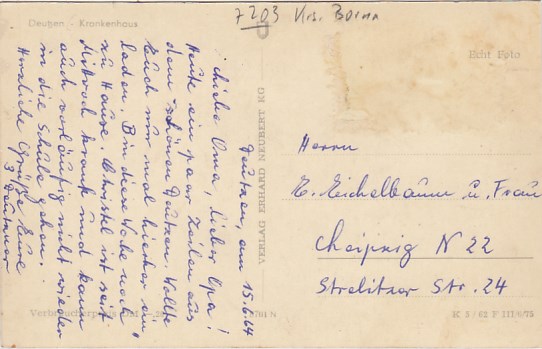 7203 Krs. Borna
Deutzen - Krankenhaus
Echt Foto
Deutzen, am 15.6.64
Liebe Oma, lieber Opa!
Heute ein paar Zeilen aus
dem schönen Deutzen. Wollte
Euch nur mal hierher ein-
laden. Bin diese Woche noch
zu Hause. Christel ist seit
Mittwoch krank und kann
auch vorläufig nicht wieder
in die Schule gehen.
Herzliche Grüße Eure
3 Deutzner
VERLAG ERHARD NEUBERT KG
Herrn
E. Eichelbaum u. Frau
Leipzig N 22
Strelitzer Str. 24
Verbraucherpreis
K 5/62 F III/8/75